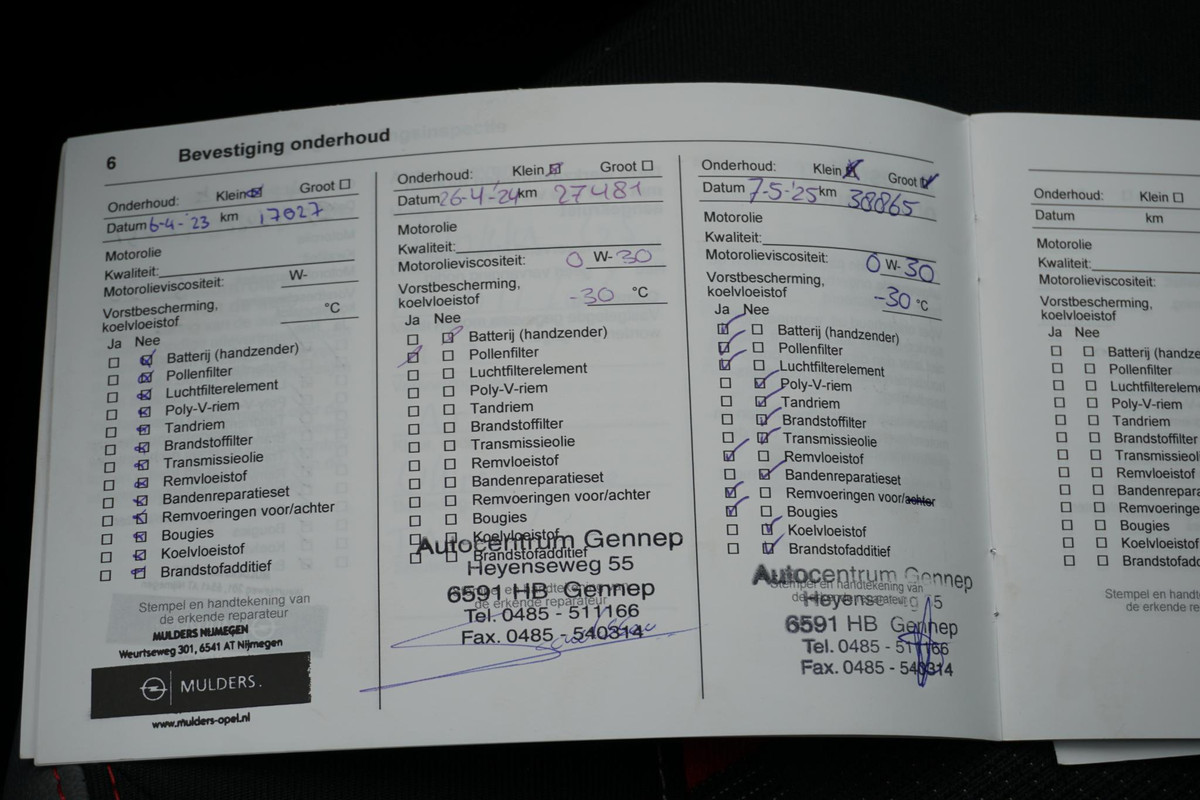 6 Bevestiging onderhoud
Onderhoud: Klein ☒ Groot ☐
Datum 6-4-'23 km 17027
Motorolie
Kwaliteit:
Motorolieviscositeit: W-
Vorstbescherming,
koelvloeistof °C
Ja Nee
☐ ☒ Batterij (handzender)
☐ ☒ Pollenfilter
☐ ☒ Luchtfilterelement
☐ ☒ Poly-V-riem
☐ ☒ Tandriem
☐ ☒ Brandstoffilter
☐ ☒ Transmissieolie
☐ ☒ Remvloeistof
☐ ☒ Bandenreparatieset
☐ ☒ Remvoeringen voor/achter
☐ ☒ Bougies
☐ ☒ Koelvloeistof
☐ ☒ Brandstofadditief
Stempel en handtekening van
de erkende reparateur
MULDERS NIJMEGEN
Weurtseweg 301, 6541 AT Nijmegen
MULDERS.
www.mulders-opel.nl
Onderhoud: Klein ☒ Groot ☐
Datum 26-4-'24 km 27481
Motorolie
Kwaliteit:
Motorolieviscositeit: 0 W-30
Vorstbescherming,
koelvloeistof -30 °C
Ja Nee
☐ ☑ Batterij (handzender)
☑ ☐ Pollenfilter
☐ ☐ Luchtfilterelement
☐ ☐ Poly-V-riem
☐ ☐ Tandriem
☐ ☐ Brandstoffilter
☐ ☐ Transmissieolie
☐ ☐ Remvloeistof
☐ ☐ Bandenreparatieset
☐ ☐ Remvoeringen voor/achter
☐ ☐ Bougies
☐ ☐ Koelvloeistof
☐ ☐ Brandstofadditief
Autocentrum Gennep
Heyenseweg 55
6591 HB Gennep
Stempel en handtekening van
de erkende reparateur
Tel. 0485 - 511166
Fax. 0485 - 540314
Onderhoud: Klein ☒ Groot ☑
Datum 7-5-'25 km 38865
Motorolie
Kwaliteit:
Motorolieviscositeit: 0 W-30
Vorstbescherming,
koelvloeistof -30 °C
Ja Nee
☑ ☐ Batterij (handzender)
☑ ☐ Pollenfilter
☑ ☐ Luchtfilterelement
☐ ☑ Poly-V-riem
☐ ☑ Tandriem
☐ ☑ Brandstoffilter
☐ ☑ Transmissieolie
☑ ☐ Remvloeistof
☐ ☑ Bandenreparatieset
☑ ☐ Remvoeringen voor/achter
☑ ☐ Bougies
☐ ☑ Koelvloeistof
☐ ☑ Brandstofadditief
Autocentrum Gennep
Stempel en handtekening van
de erkende reparateur
Heyenseweg 55
6591 HB Gennep
Tel. 0485 - 511166
Fax. 0485 - 540314
Onderhoud: Klein ☐
Datum km
Motorolie
Kwaliteit:
Motorolieviscositeit:
Vorstbescherming,
koelvloeistof
Ja Nee
☐ ☐ Batterij (handze
☐ ☐ Pollenfilter
☐ ☐ Luchtfilterelem
☐ ☐ Poly-V-riem
☐ ☐ Tandriem
☐ ☐ Brandstoffilter
☐ ☐ Transmissieoli
☐ ☐ Remvloeistof
☐ ☐ Bandenrepara
☐ ☐ Remvoeringen
☐ ☐ Bougies
☐ ☐ Koelvloeistof
☐ ☐ Brandstofadd
Stempel en handt
de erkende re